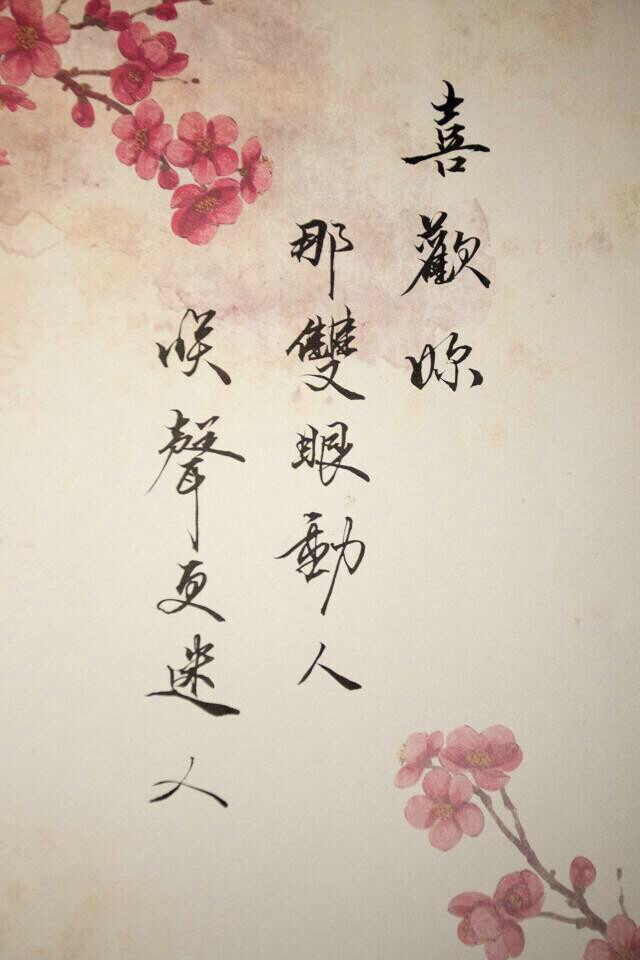 喜歡妳
那雙眼動人
咲聲更迷人